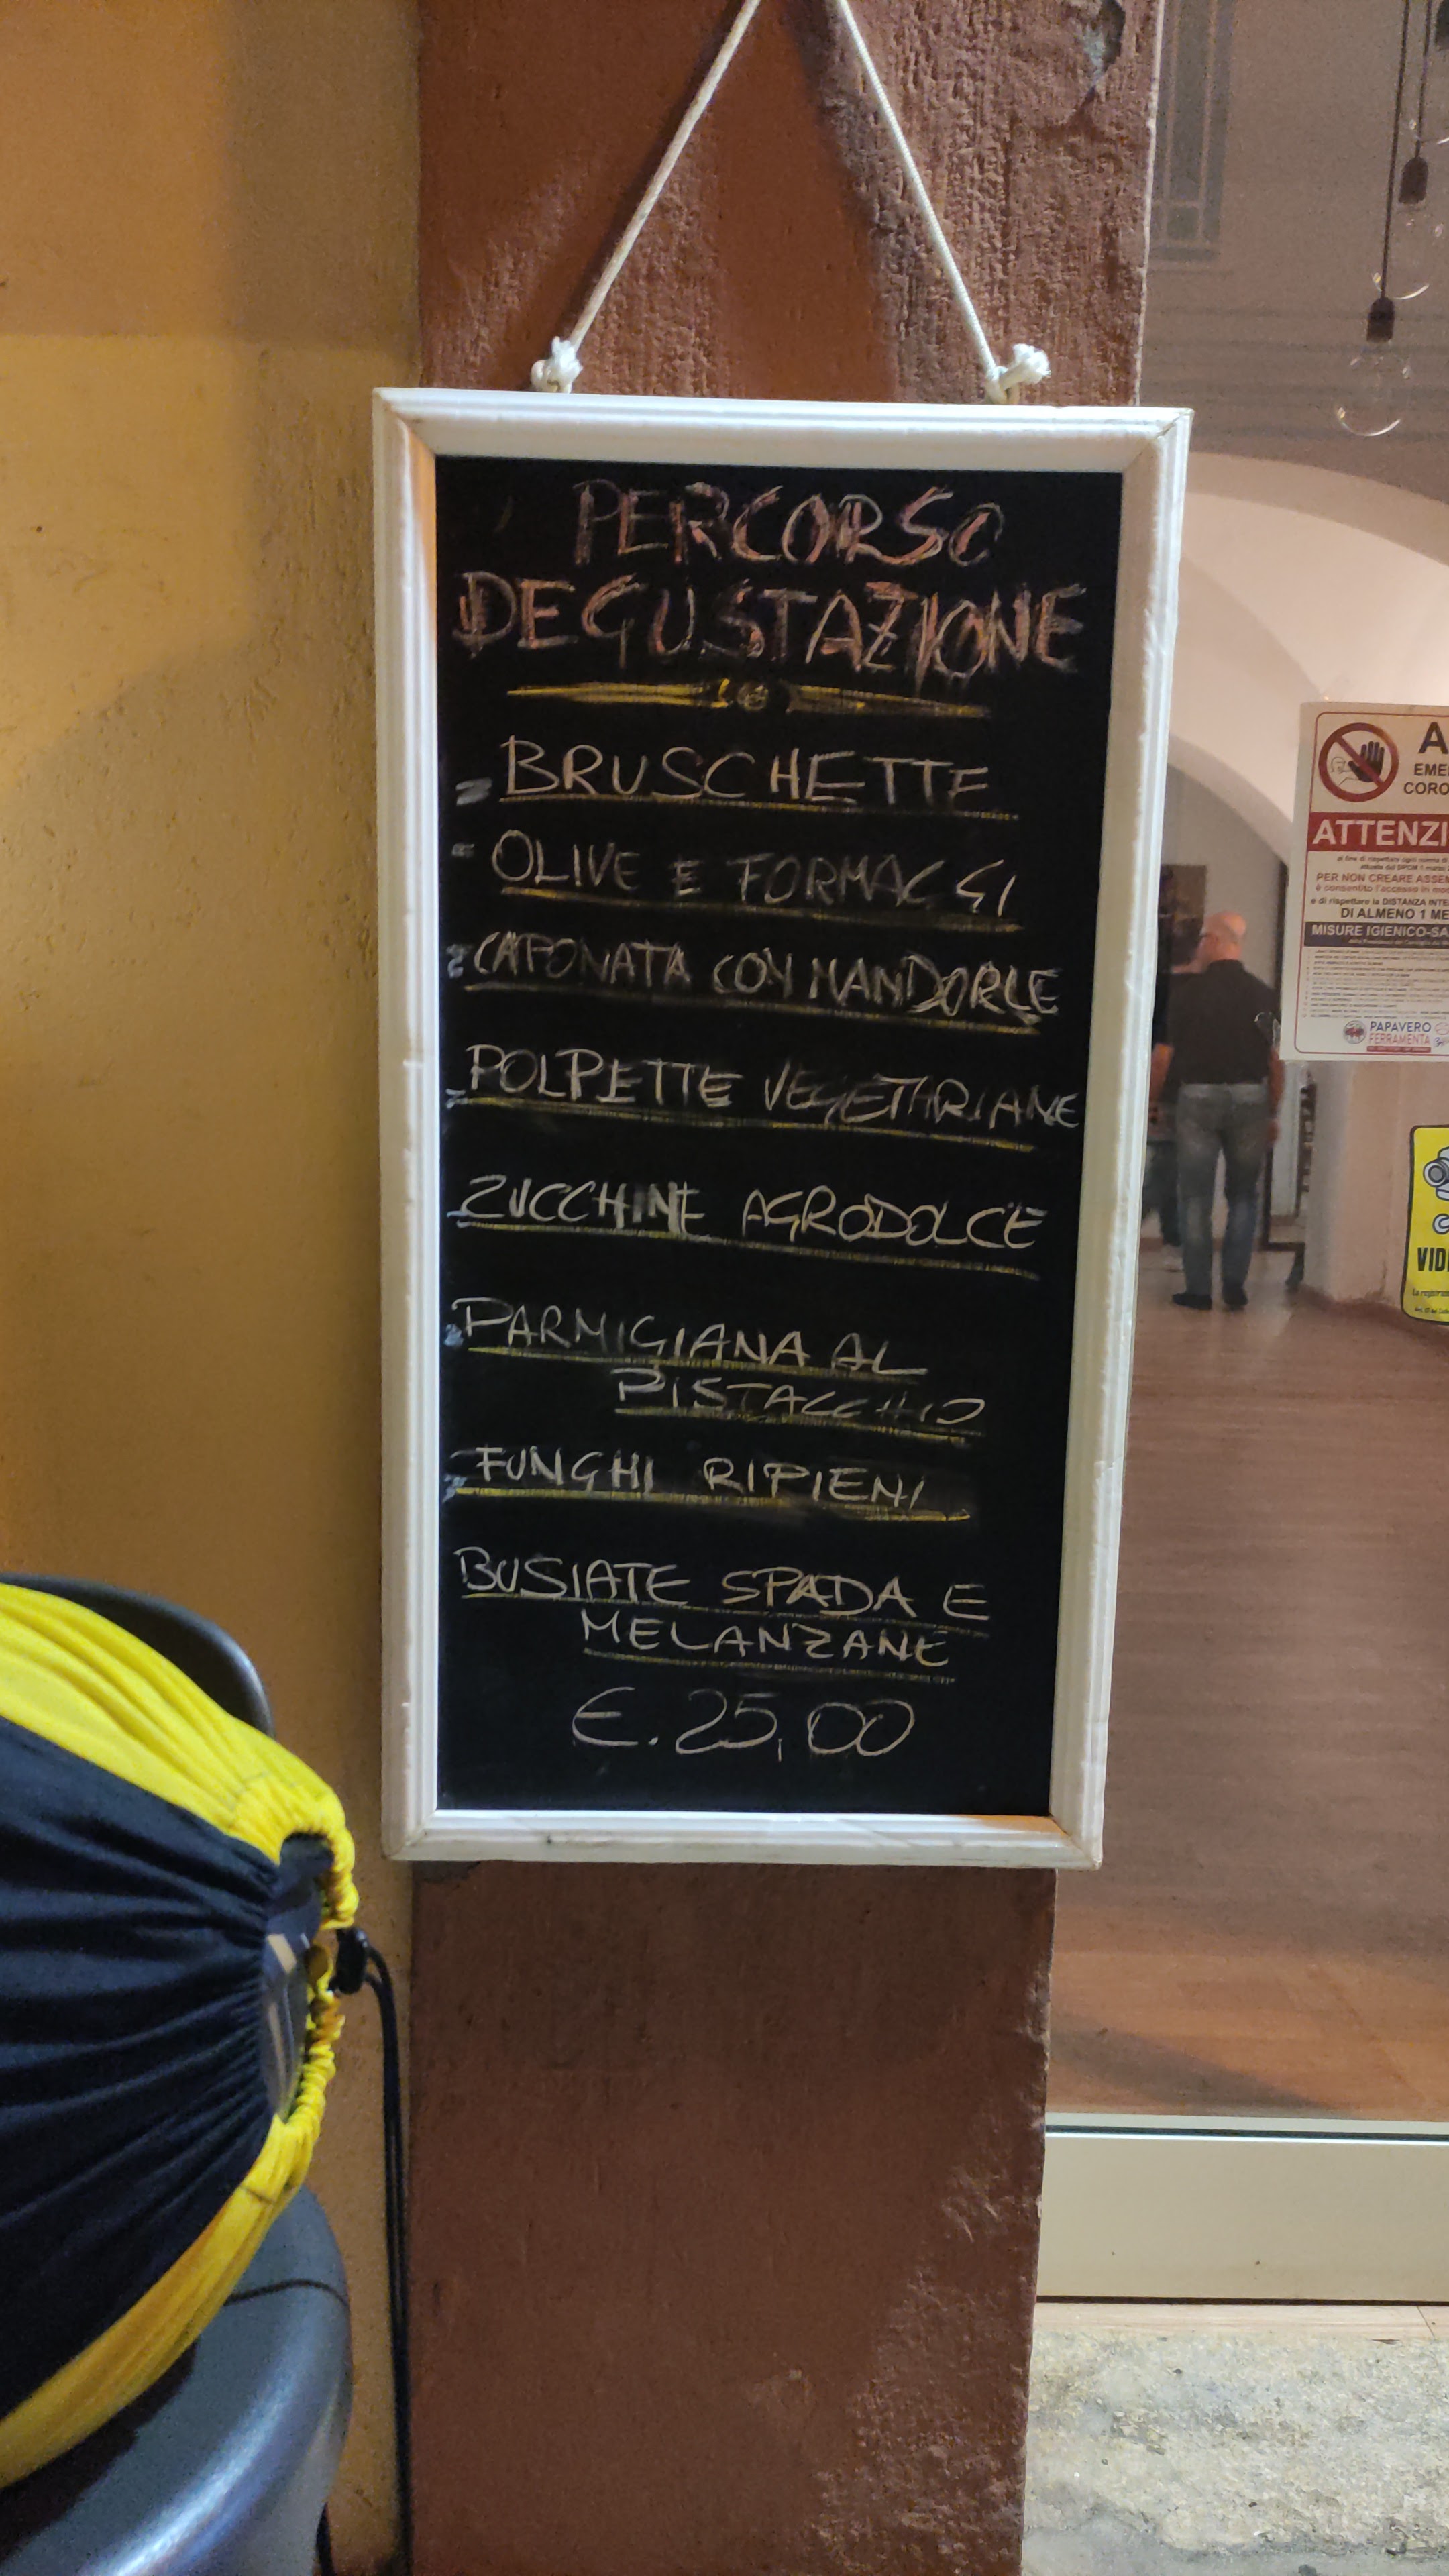 PERCORSO
DEGUSTAZIONE
BRUSCHETTE
OLIVE E FORMAGGI
CAPONATA CON MANDORLE
POLPETTE VEGETARIANE
ZUCCHINE AGRODOLCE
PARMIGIANA AL
PISTACCHIO
FUNGHI RIPIENI
BUSIATE SPADA E
MELANZANE
€. 25,00
A
EME
CORO
ATTENZI
PER NON CREARE ASSE
DI ALMENO 1 ME
MISURE IGIENICO-SA
PAPAVERO
FERRAMENTA
VID